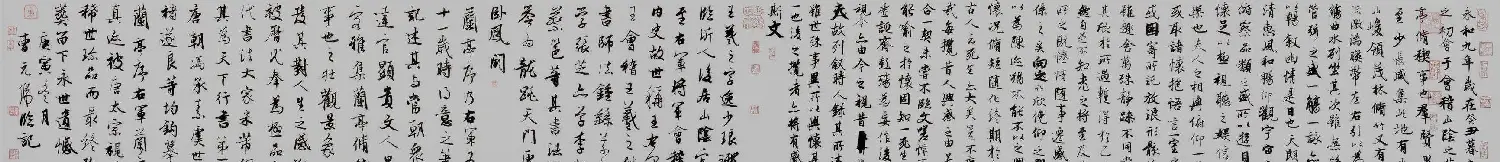 永和九年歲在癸丑暮
之初會于會稽山陰之
亭脩禊事也羣賢
至少長咸集此地有
山峻領茂林脩竹又
流激湍暎帶左右引以
觴曲水列坐其次雖無
管弦之盛一觴一詠
以暢敘幽情是日也天朗
清惠風和暢仰觀宇宙
俯察品類之盛所以遊目
懷足以極視聽之娛信
樂也夫人之相與俯仰一
或取諸懷抱悟言一室之
或因寄所託放浪形骸
雖趣舍萬殊靜躁不同
其欣於所遇蹔得於己
然自足不知老之將至及
所之既惓情隨事遷
係之矣向之所欣俛仰之
以為陳迹猶不能不以之
懷況脩短隨化終期於
古人云死生亦大矣豈不
每攬昔人興感之由若
合一契未嘗不臨文嗟悼
能喻之於懷固知一死生
誕齊彭殤為妄作後
視今亦由今之視昔
夫故列敘時人錄其所
雖世殊事異所以興懷其
一也後之攬者亦將有
斯文
王羲之字逸少琅琊
臨沂人後居山陰官
至右軍將軍會稽
內史故世稱王右軍
王會稽王羲之
書師法鍾繇
學張芝李
蔡邕等其書法
龍跳天門
臥鳳閣
蘭亭序乃右軍
十一歲時得意之書
記述其與當朝眾
達官顯貴文人
雅集蘭亭
事也之壯觀景象
發其對人生之感
被歷代奉為極品
代書法大家米芾
其為天下行書第
唐朝馮承素虞世
褚遂良等均鉤摹
蘭亭序右軍蘭
真迹被唐太宗視
稀世珍品而最終
墓留下永世遺憾
庚寅冬月
曹元偉臨記